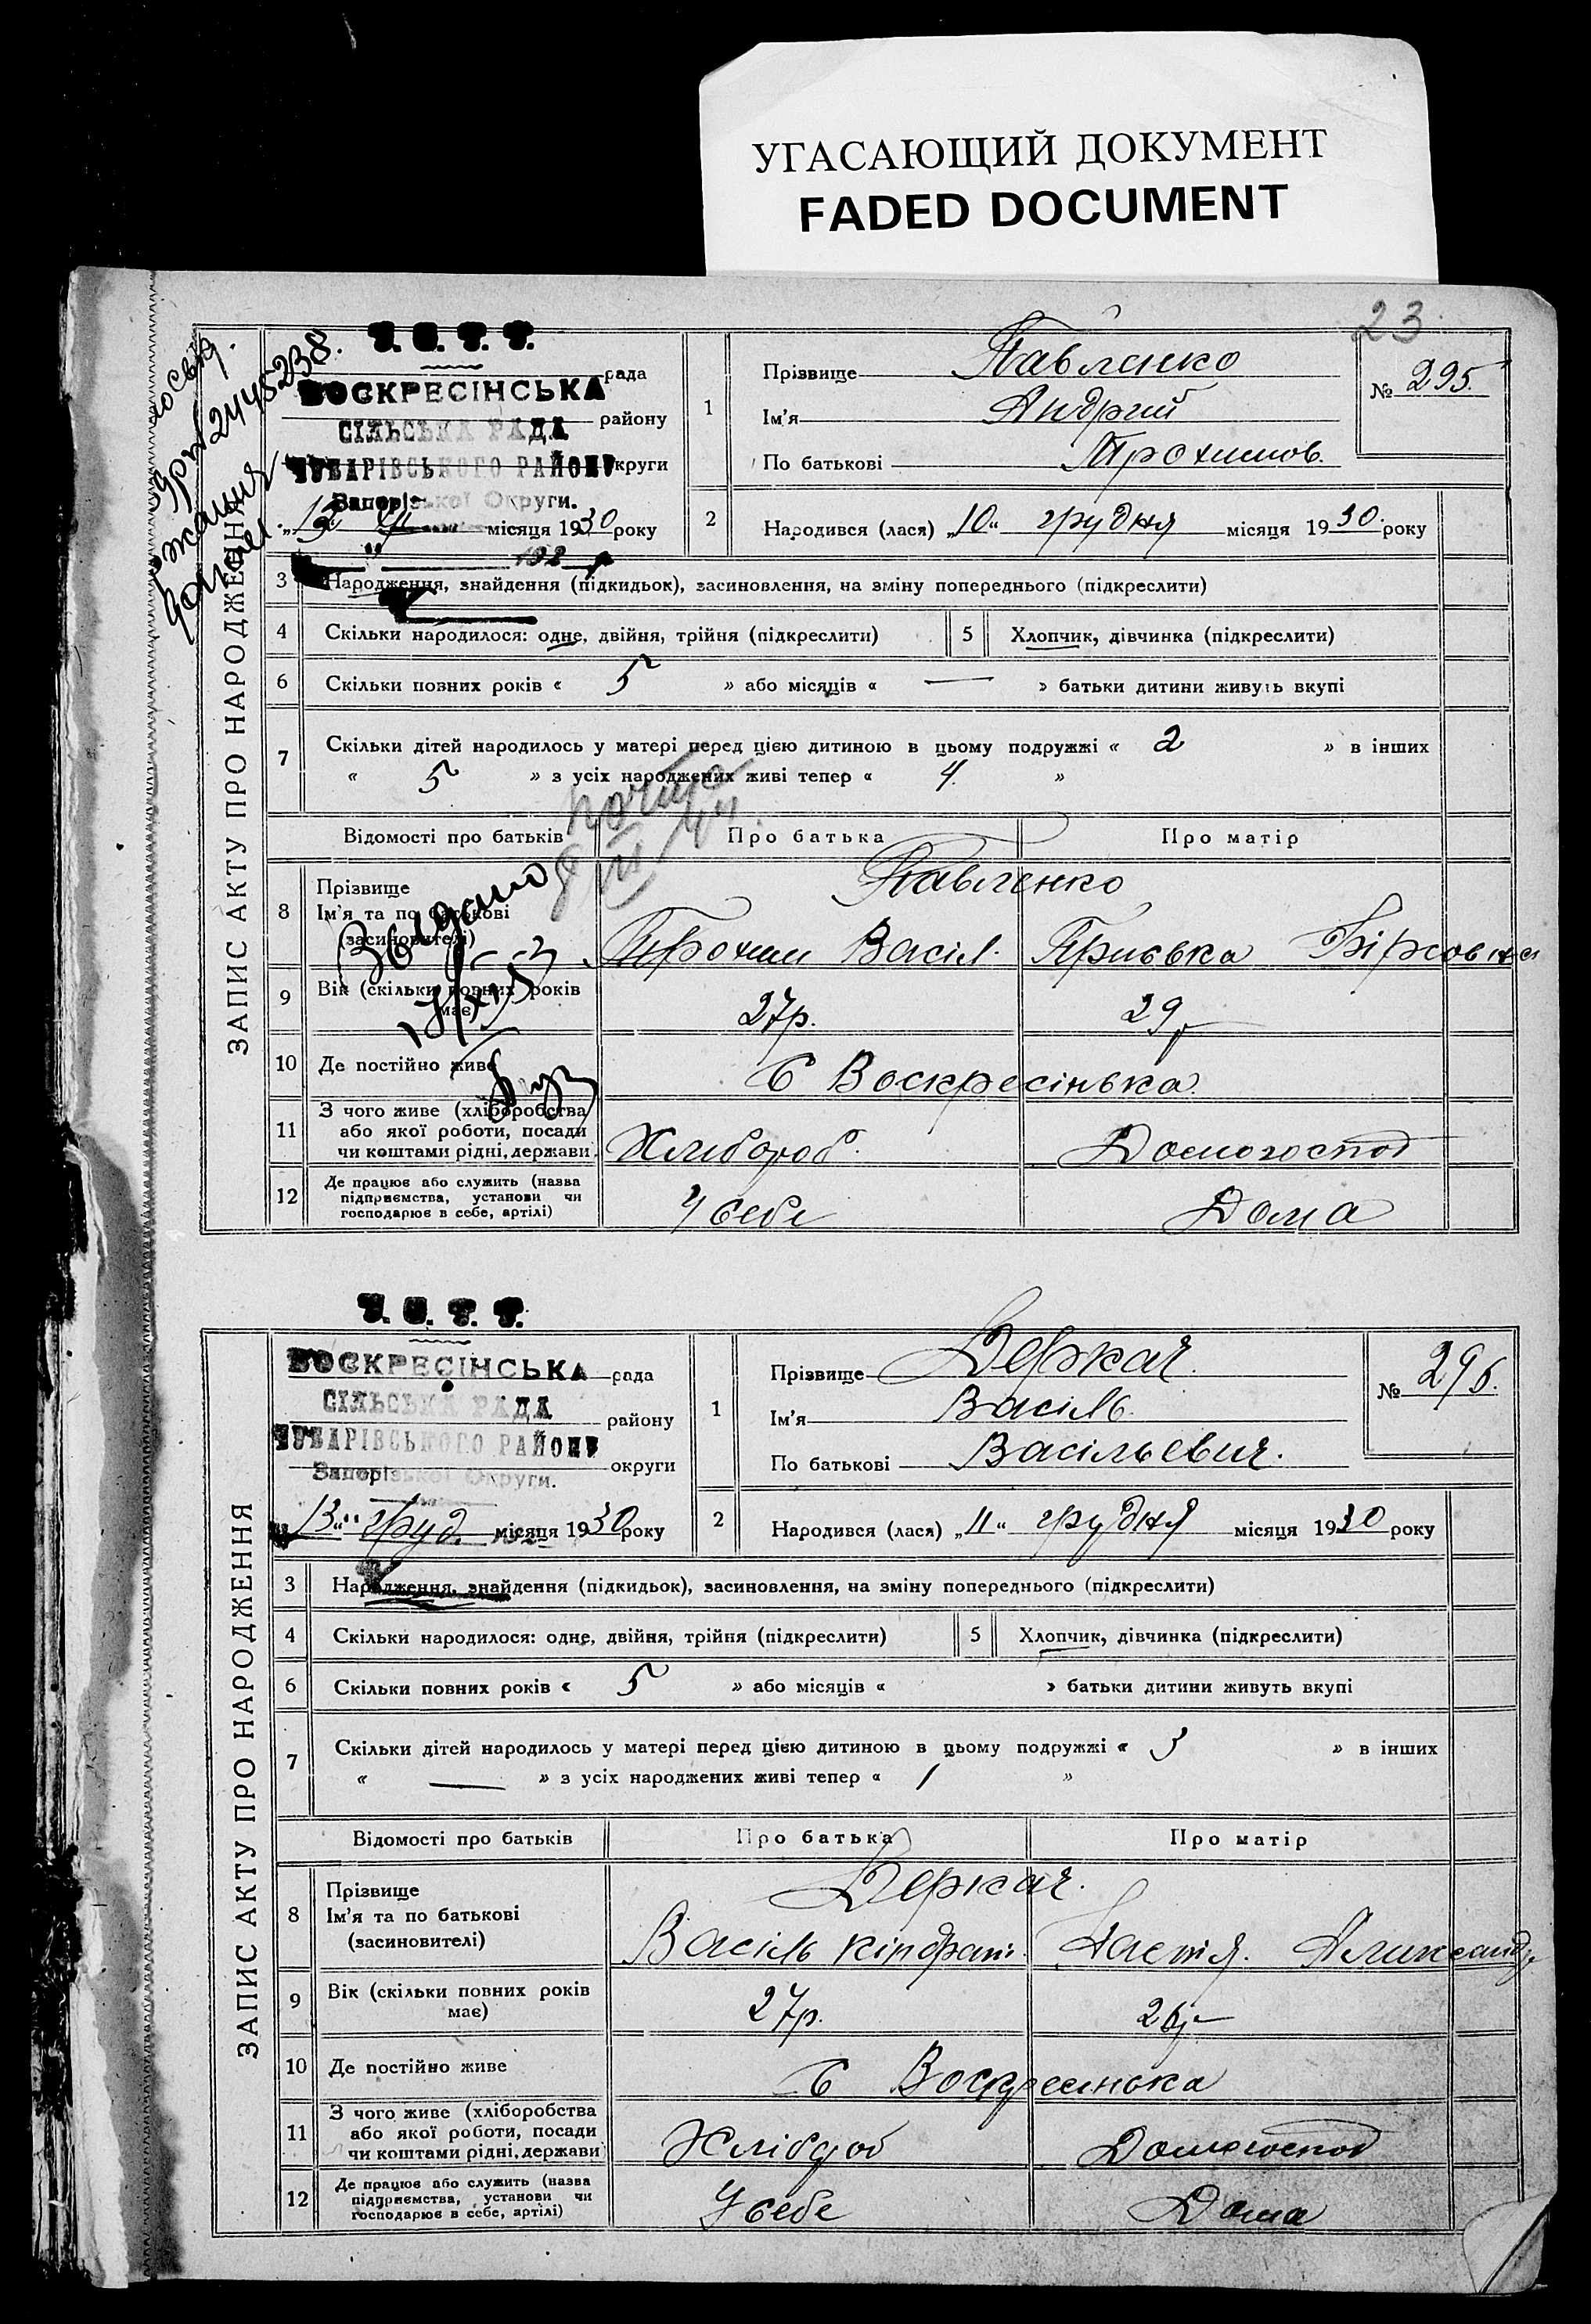 УГАСАЮЩИЙ ДОКУМЕНТ
FADED DOCUMENT
23
ЗАПИС АКТУ ПРО НАРОДЖЕННЯ
У.С.Р.Р.
ВОСКРЕСІНСЬКА рада
СІЛЬСЬКА РАДА району
ЧУБАРІВСЬКОГО РАЙОНУ округи
Запорізької Округи.
місяця 1930 року
1 Прізвище Павленко
№ 295
Ім'я Андрий
По батькові Трохимов.
2 Народився (лася) „10" грудня місяця 1930 року
3 Народження, знайдення (підкидьок), засиновлення, на зміну попереднього (підкреслити)
4 Скільки народилося: одне, двійня, трійня (підкреслити) 5 Хлопчик, дівчинка (підкреслити)
6 Скільки повних років « 5 » або місяців « — » батьки дитини живуть вкупі
7 Скільки дітей народилось у матері перед цією дитиною в цьому подружжі « 2 » в інших
« 5 » з усіх народжених живі тепер « 4 »
Відомості про батьків Про батька Про матір
8 Прізвище Павленко
Ім'я та по батькові
(засиновителі) Трохим Васіл. Приська
9 Вік (скільки повних років має) 27р. 29р
10 Де постійно живе С Воскресінька
11 З чого живе (хліборобства або якої роботи, посади чи коштами рідні, держави) Хлибороб. Домогоспод
12 Де працює або служить (назва підприємства, установи чи господарює в себе, артілі) У себе Дома
Выдано
ЗАПИС АКТУ ПРО НАРОДЖЕННЯ
У.С.Р.Р.
ВОСКРЕСІНСЬКА рада
СІЛЬСЬКА РАДА району
ЧУБАРІВСЬКОГО РАЙОНУ округи
Запорізької Округи.
„13" груд. місяця 1930 року
1 Прізвище Деркач.
№ 296.
Ім'я Васіль
По батькові Васільевич.
2 Народився (лася) „11" грудня місяця 1930 року
3 Народження, знайдення (підкидьок), засиновлення, на зміну попереднього (підкреслити)
4 Скільки народилося: одне, двійня, трійня (підкреслити) 5 Хлопчик, дівчинка (підкреслити)
6 Скільки повних років « 5 » або місяців « » батьки дитини живуть вкупі
7 Скільки дітей народилось у матері перед цією дитиною в цьому подружжі « 3 » в інших
« — » з усіх народжених живі тепер « 1 »
Відомості про батьків Про батька Про матір
8 Прізвище Деркач.
Ім'я та по батькові
(засиновителі) Васіль Кіндрат. Настя. Александ
9 Вік (скільки повних років має) 27р. 26р
10 Де постійно живе С Воскресінька
11 З чого живе (хліборобства або якої роботи, посади чи коштами рідні, держави) Хлібороб Домогоспод
12 Де працює або служить (назва підприємства, установи чи господарює в себе, артілі) У себе Дома